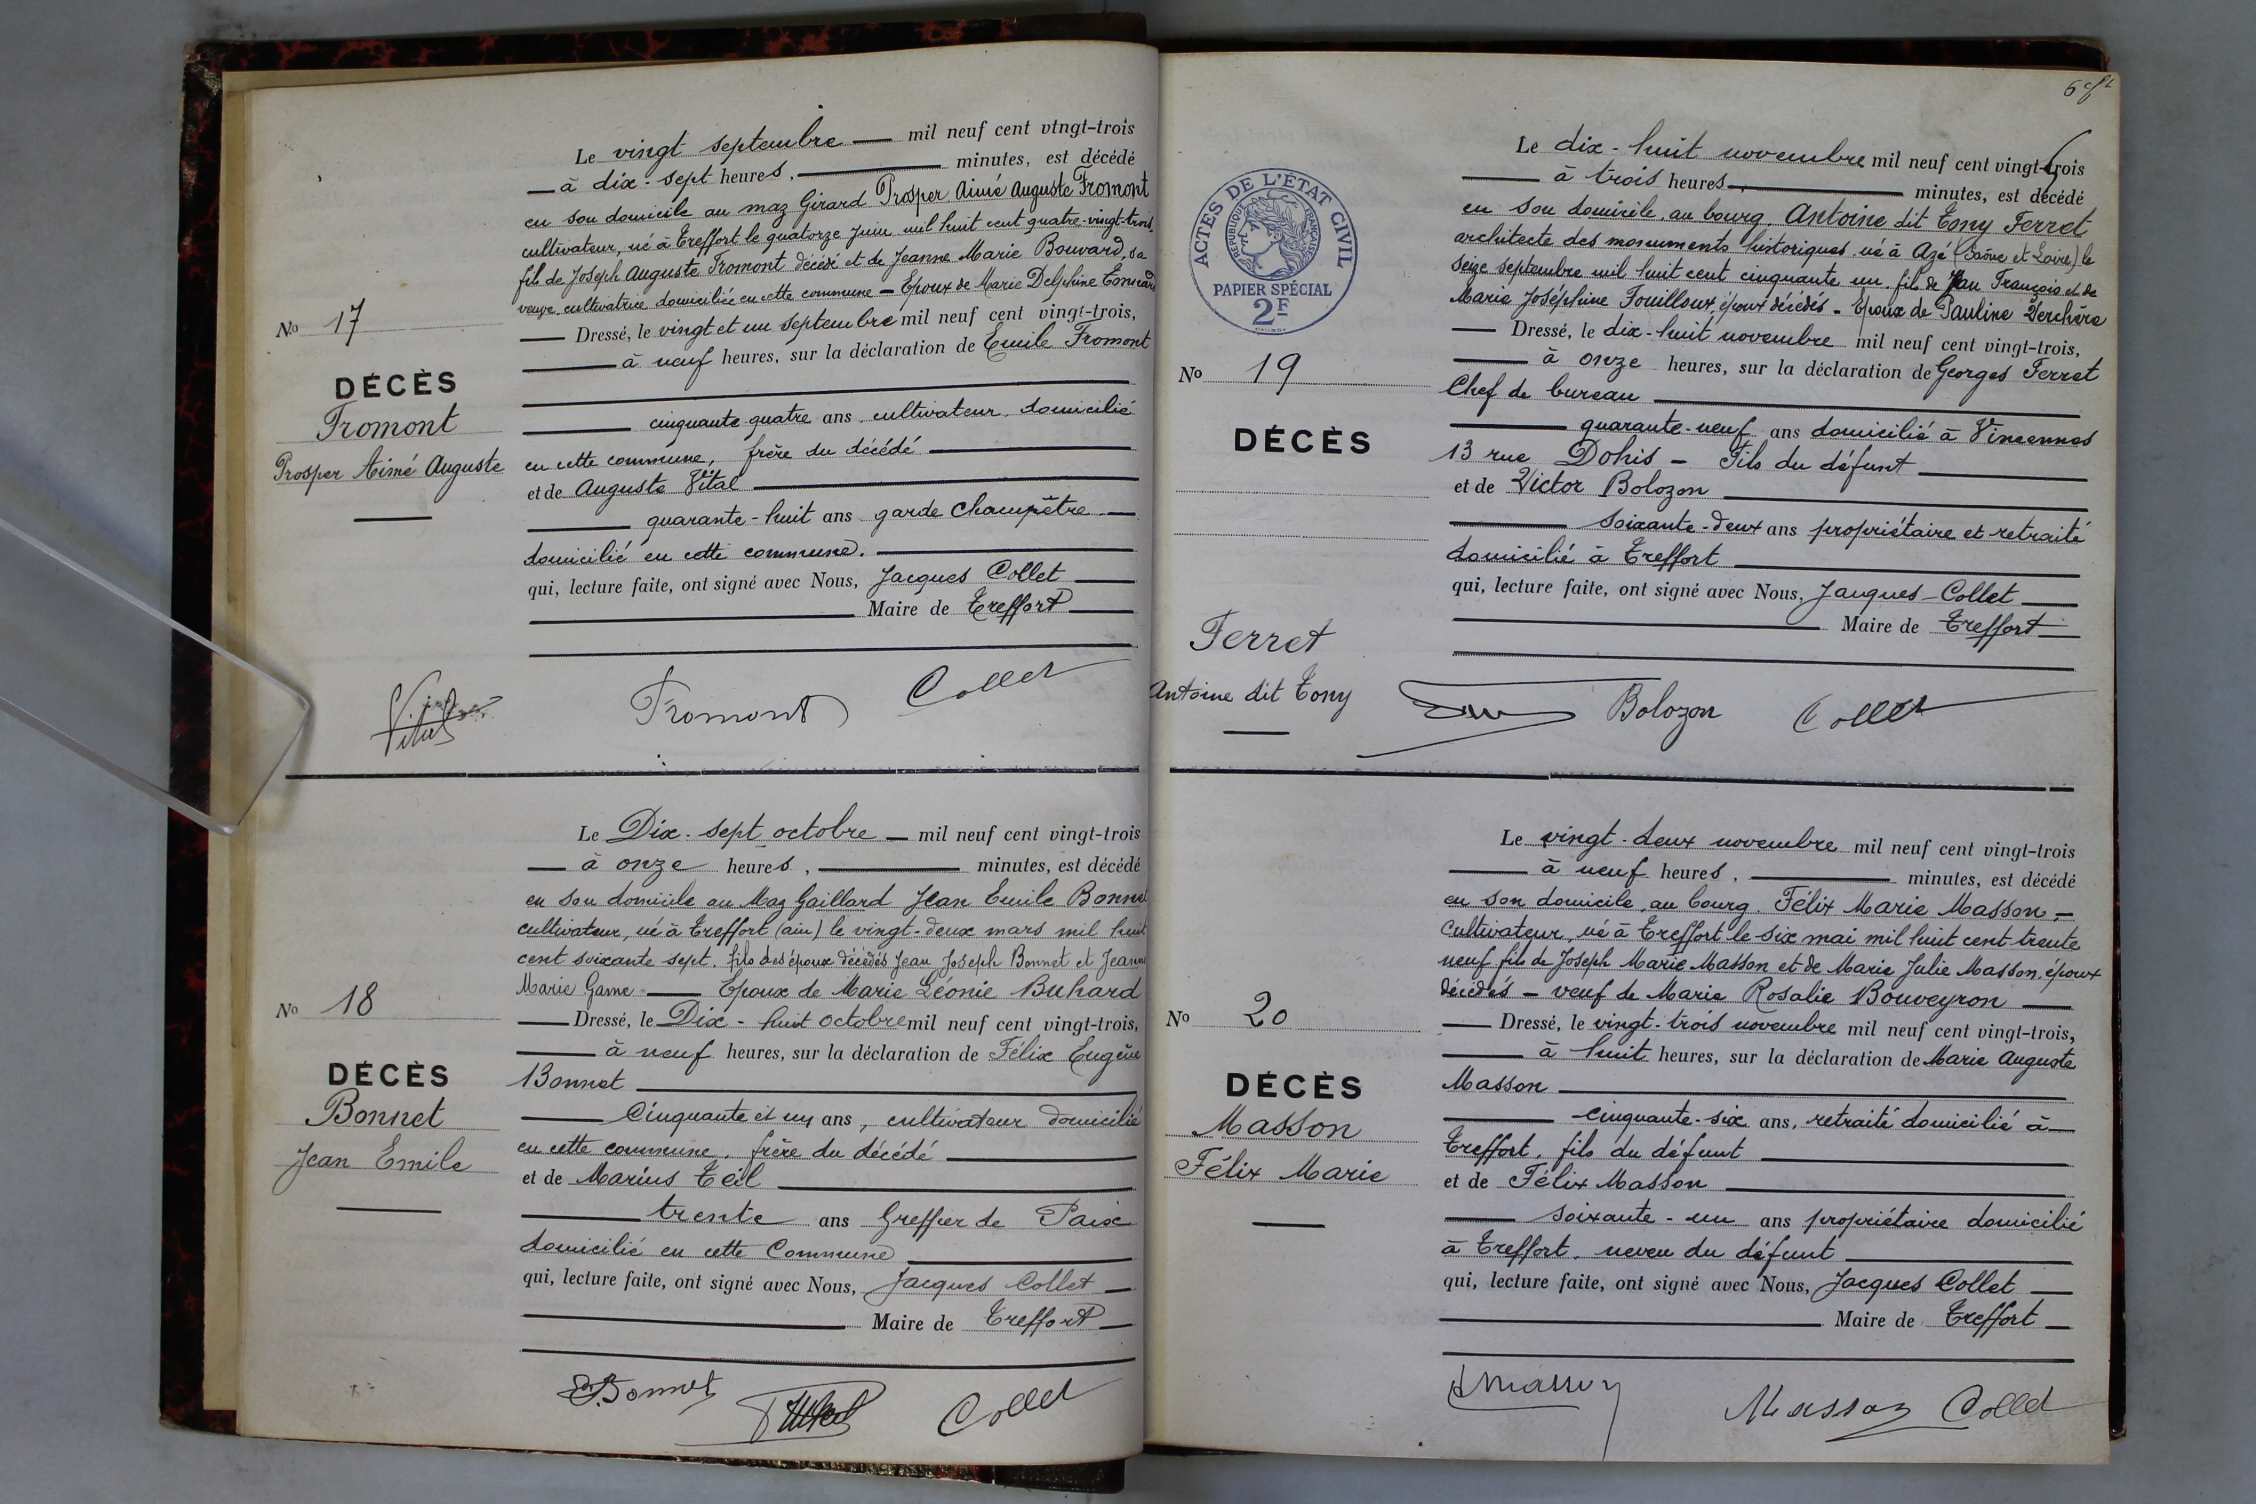 Le vingt septembre — mil neuf cent vingt-trois
— à dix-sept heures, — minutes, est décédé
en son domicile au maz Girard Prosper Aimé Auguste Fromont
cultivateur, né à Treffort le quatorze Juin mil huit cent quatre-vingt-trois
fils de Joseph Auguste Fromont décédé et de Jeanne Marie Bouvard, sa
veuve cultivatrice domiciliée en cette commune — Epoux de Marie Delphine
— Dressé, le vingt et un septembre mil neuf cent vingt-trois,
— à neuf heures, sur la déclaration de Emile Fromont
cinquante quatre ans cultivateur domicilié
en cette commune, frère du décédé —
et de Auguste Vital —
— quarante-huit ans garde Champêtre —
domicilié en cette commune. —
qui, lecture faite, ont signé avec Nous, Jacques Collet —
— Maire de Treffort —
No 17
DÉCÈS
Fromont
Prosper Aimé Auguste
Vital Fromont Collet
Le Dix-sept octobre — mil neuf cent vingt-trois
— à onze heures, — minutes, est décédé
en son domicile au Maz Gaillard Jean Emile Bonnet
cultivateur, né à Treffort (ain) le vingt-deux mars mil huit
cent soixante sept. fils des époux décédés Jean Joseph Bonnet et Jeanne
Marie Game — Epoux de Marie Léonie Buhard
— Dressé, le Dix-huit octobre mil neuf cent vingt-trois,
— à neuf heures, sur la déclaration de Félix Eugène
Bonnet —
— Cinquante et un ans, cultivateur domicilié
en cette commune, frère du décédé —
et de Marius Teil —
— trente ans Greffier de Paix
domicilié en cette Commune —
qui, lecture faite, ont signé avec Nous, Jacques Collet —
— Maire de Treffort —
No 18
DÉCÈS
Bonnet
Jean Emile
E. Bonnet Collet
ACTES DE L'ÉTAT CIVIL
RÉPUBLIQUE FRANÇAISE
PAPIER SPÉCIAL
2F
Le dix-huit novembre mil neuf cent vingt-trois
— à trois heures — minutes, est décédé
en son domicile, au bourg, Antoine dit Tony Ferret
architecte des monuments historiques né à Azé (Saône et Loire) le
seize septembre mil huit cent cinquante un, fils de Jean François et de
Marie Joséphine Fouilloux, époux décédés — Epoux de Pauline Verchère
— Dressé, le dix-huit novembre mil neuf cent vingt-trois,
— à onze heures, sur la déclaration de Georges Ferret
Chef de bureau —
— quarante-neuf ans domicilié à Vincennes
13 rue Dohis — Fils du défunt —
et de Victor Bolozon —
— soixante-deux ans propriétaire et retraité
domicilié à Treffort —
qui, lecture faite, ont signé avec Nous, Jacques Collet —
— Maire de Treffort —
No 19
DÉCÈS
Ferret
Antoine dit Tony
Bolozon Collet
Le vingt-deux novembre mil neuf cent vingt-trois
— à neuf heures, — minutes, est décédé
en son domicile, au bourg, Félix Marie Masson —
cultivateur, né à Treffort le six mai mil huit cent trente
neuf fils de Joseph Marie Masson et de Marie Julie Masson, époux
décédés — veuf de Marie Rosalie Bouveyron —
— Dressé, le vingt-trois novembre mil neuf cent vingt-trois,
— à huit heures, sur la déclaration de Marie Auguste
Masson —
— cinquante-six ans, retraité domicilié à —
Treffort, fils du défunt —
et de Félix Masson —
— soixante-un ans propriétaire domicilié
à Treffort, neveu du défunt —
qui, lecture faite, ont signé avec Nous, Jacques Collet —
— Maire de Treffort —
No 20
DÉCÈS
Masson
Félix Marie
Masson Masson Collet